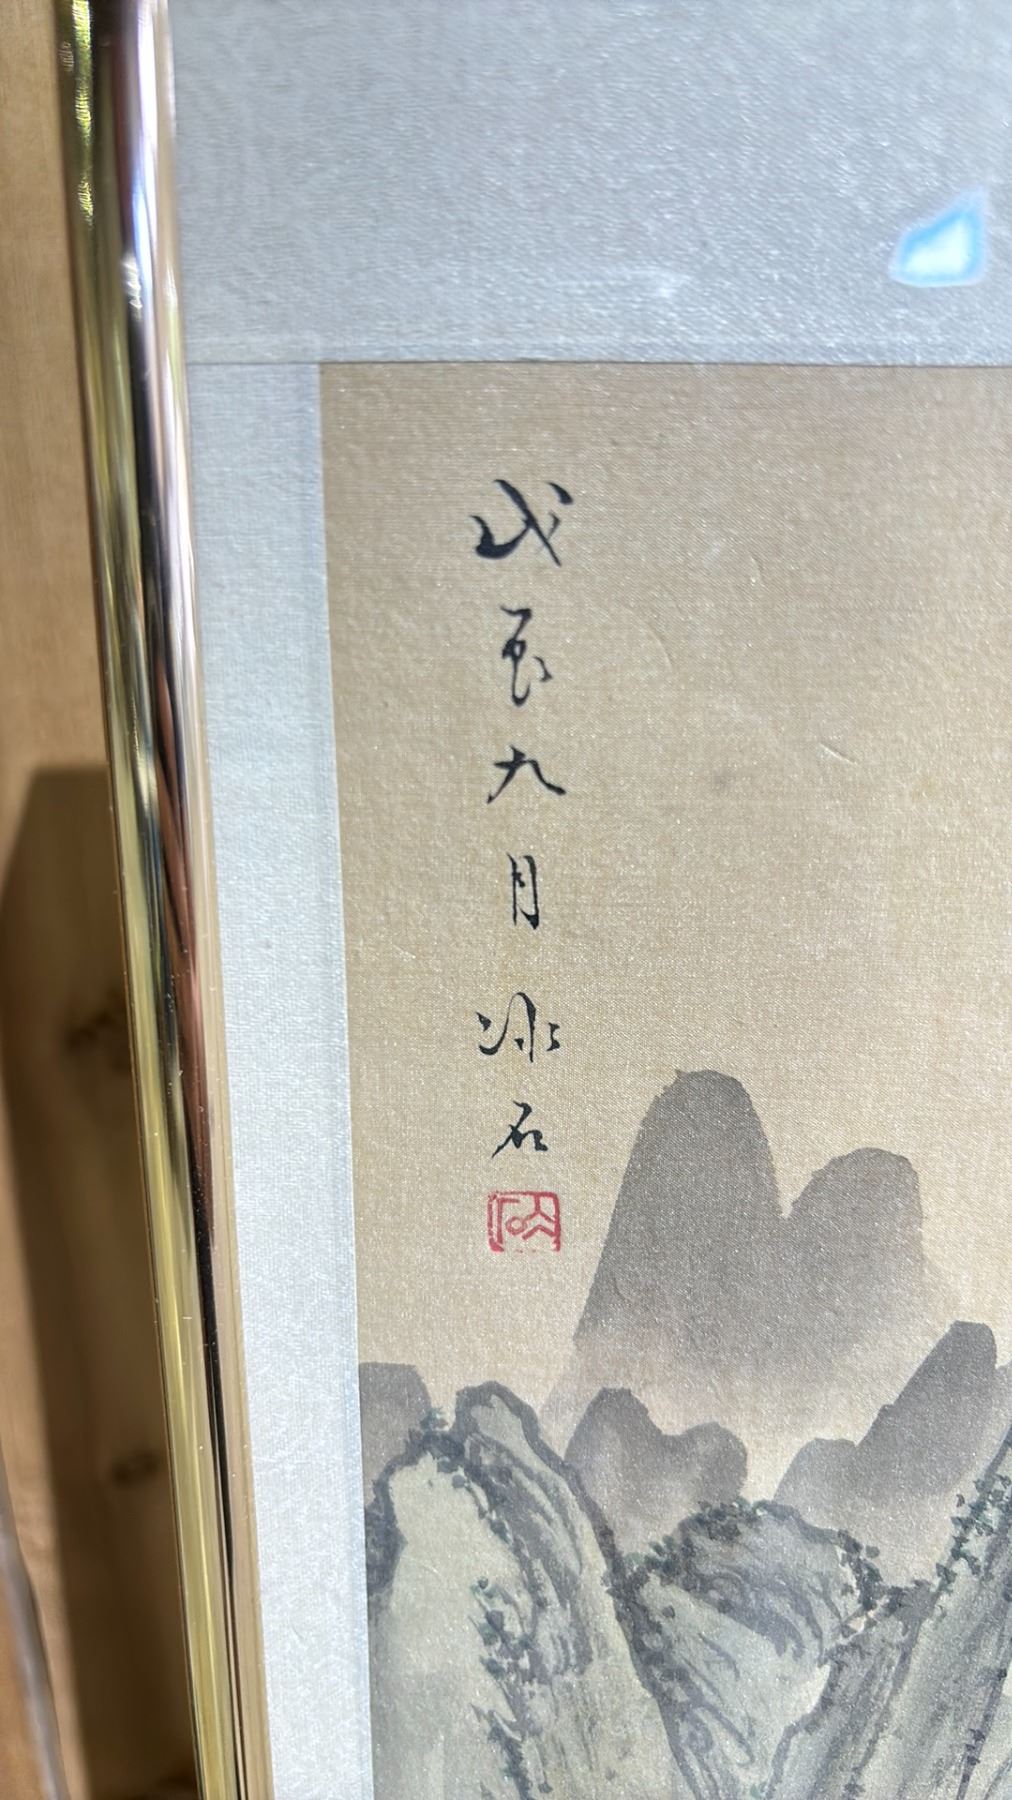 戊辰九月冰石